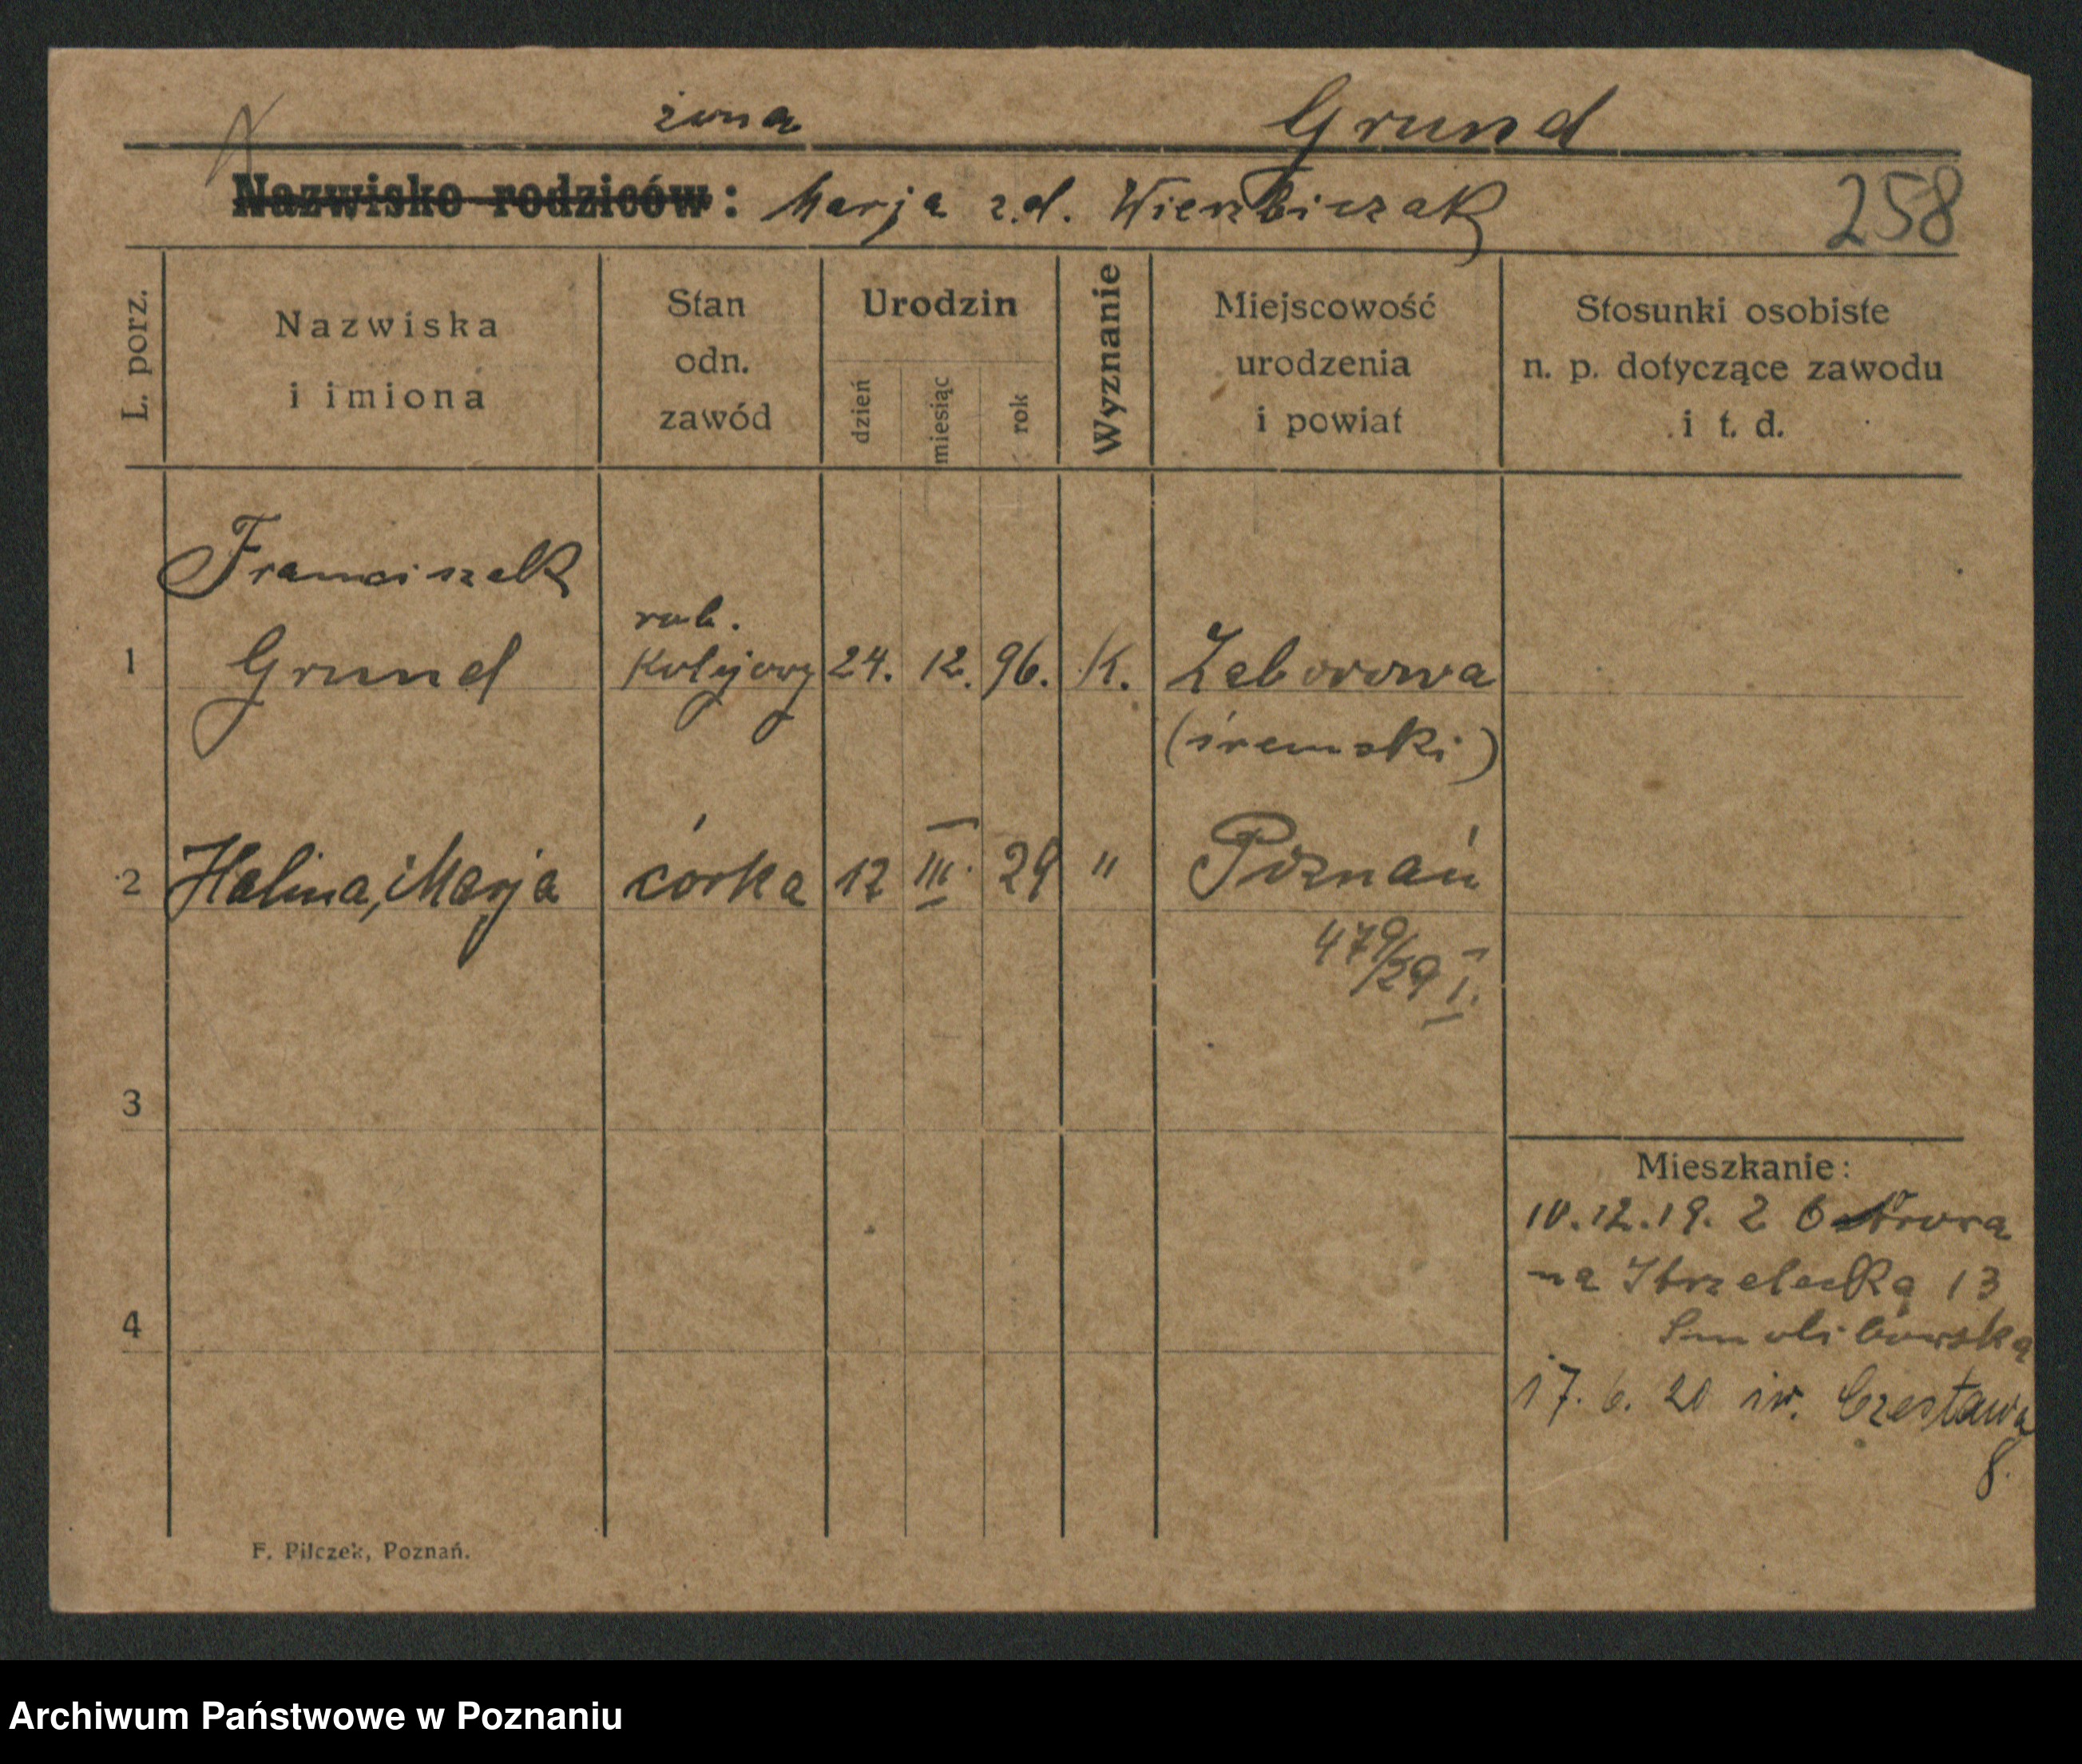 żona Grund
Nazwisko rodziców: Marja z.d. Wierzbiczak 258
L. porz.
Nazwiska
i imiona
Stan
odn.
zawód
Urodzin
dzień
miesiąc
rok
Wyznanie
Miejscowość
urodzenia
i powiat
Stosunki osobiste
n. p. dotyczące zawodu
i t. d.
Franciszek
rob.
1 Grund kolejowy 24. 12. 96. K. Zaborowa
(śremski)
2 Halina, Marja córka 12 III. 29 " Poznań
479/29 I.
3
4
Mieszkanie:
10.12.19. z
na Strzelecką 13
17. 6. 20 św. Czesława
8.
F. Pilczek, Poznań.
Archiwum Państwowe w Poznaniu